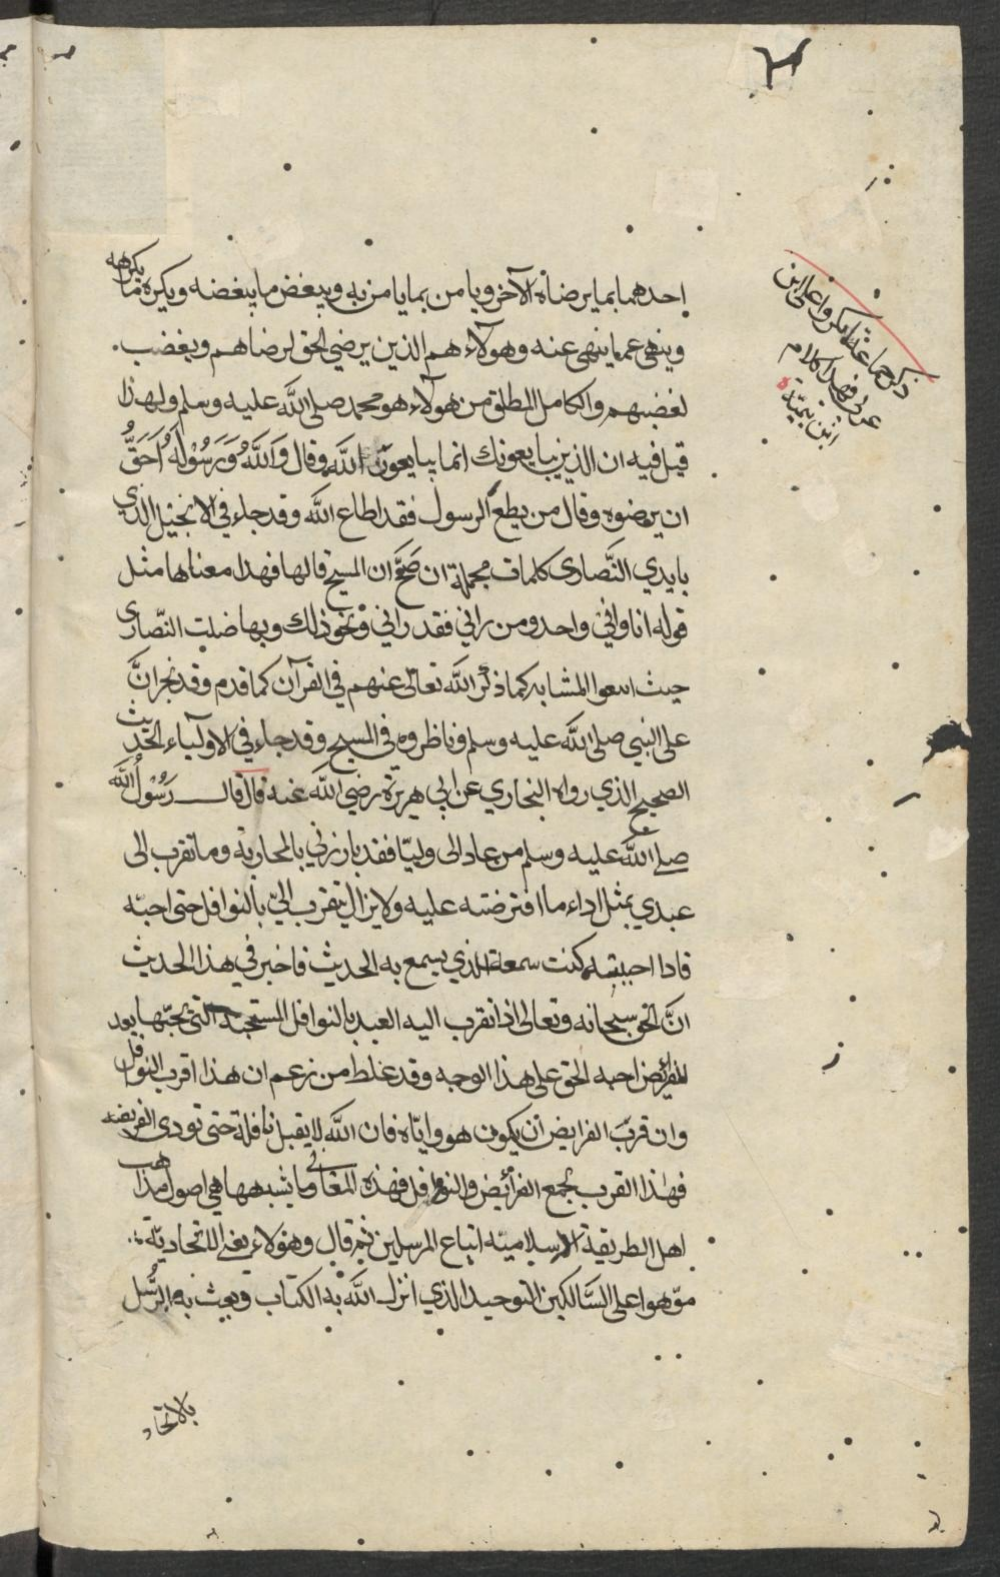 احدهما بما يرضاه الآخر ويامن بما يامن به ويبغض ما يبغضه ويكره ما يكرهه
وينهى عما ينهى عنه وهولآء هم الذين يرضي الحق لرضاهم ويغضب
لغضبهم والكامل المطلق من هولآء هو محمد صلى الله عليه وسلم ولهذا
قيل فيه ان الذين يبايعونك انما يبايعون الله وقال وَاللَّهُ وَرَسُوْلُهُ اَحَقُّ
ان يرضوه وقال من يطع الرسول فقد اطاع الله وقد جاء في الانجيل الذي
بايدي النَّصارى كلمات مجملة ان صَحَّ ان المسيح قالها فهذا معناها مثل
قوله انا وابي واحد ومن راني فقد راني ونحو ذلك وبها ضلت النّصارى
حيث اتبعوا المتشابه كما ذكر الله تعالى عنهم في القرآن كما قدم وفد نجرانَّ
على النبي صلى الله عليه وسلم وناظروه في المسيح وقد جاء في الاولياء الحديث
الصحيح الذي رواه البخاري عن ابي هريرة رضي الله عنه قال قال رَسُوْلُ الله
صلى الله عليه وسلم من عادا لى وليّا فقد بارزني بالمحاربة وما تقرب الى
عبدي بمثل اداء ما افترضته عليه ولا يزال يتقرب اليّ بالنوافل حتى احبّه
فاذا احببته كنت سمعه الذي يسمع به الحديث فاخبر في هذا الحديث
انَّ الحق سبحانه وتعالى اذا تقرب اليه العبد بالنوافل المستحبة التي يحبّها بعد
الفرايض احبه الحق على هذا الوجه وقد غلط من زعم ان هذا اقرب النوافل
وان قربَ الفرايض ان يكون هو واياه فان الله لا يقبل نافلة حتى تودى الفريضة
فهٰذا القرب يجمع الفرآئض والنوافل فهذه المعانى وما يشبهها هي اصول مذاهب
اهل الطريقة الاسلاميّة اتباع المرسلين ثم قال وهٰولاء يعنى الاتحاديّة
موّهوا على السَّالكين التوحيد الذي انزل الله به الكتاب وبعث به الرُّسل
بالاتحاد
ذكر جماعة انكروا على ابن
عربي وفيه كلام
ابن تيمية